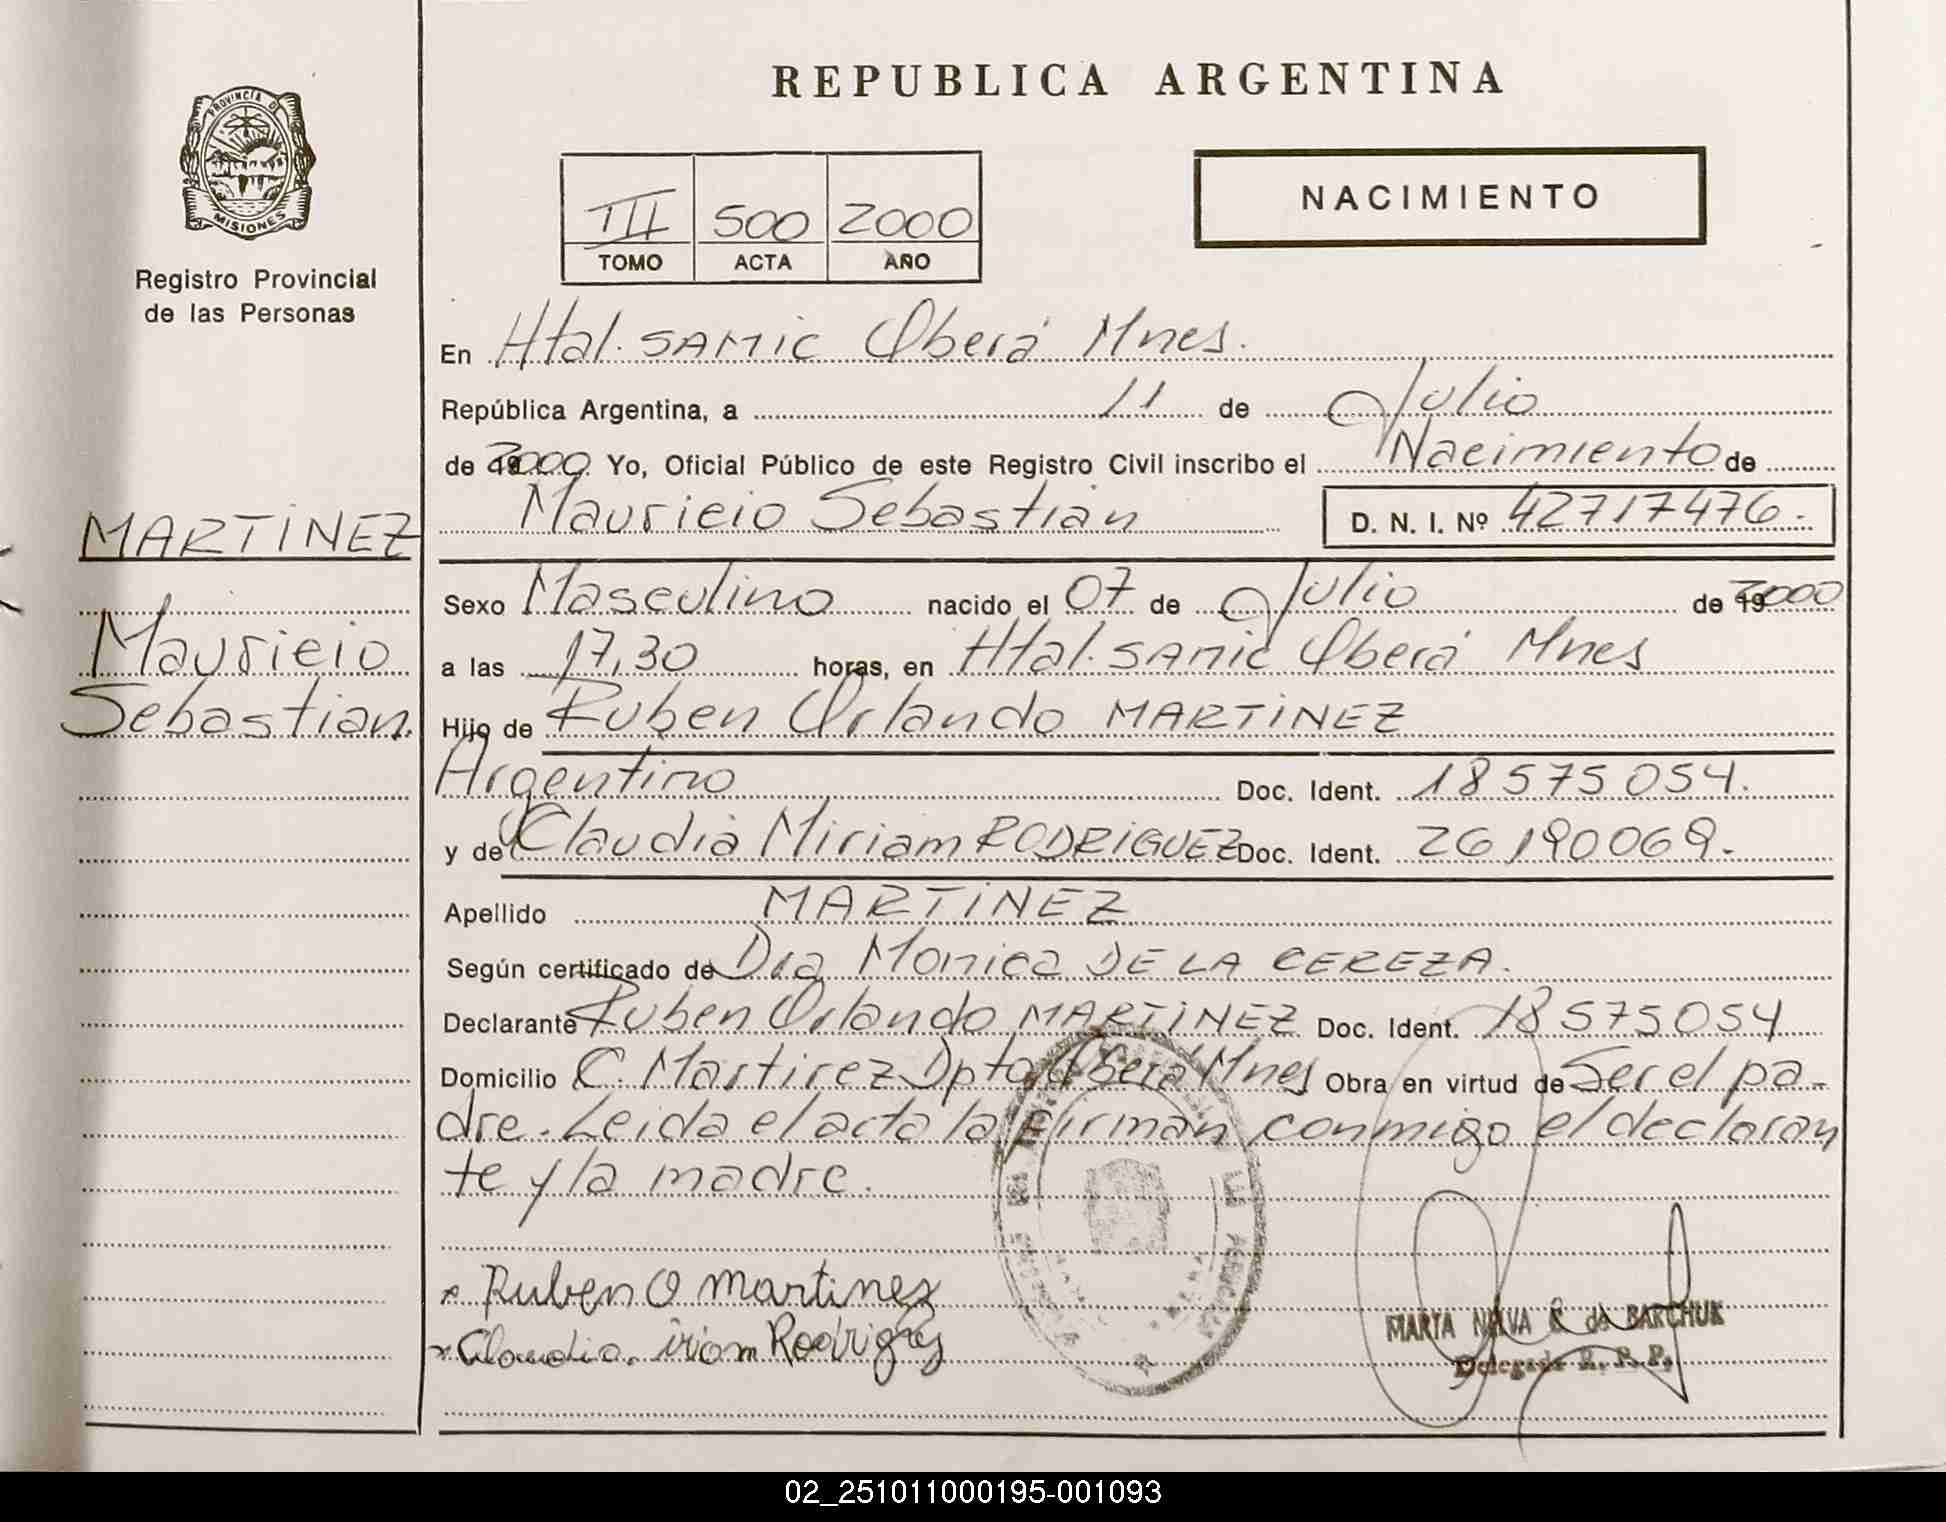 REPUBLICA ARGENTINA
PROVINCIA DE
MISIONES
Registro Provincial
de las Personas
III 500 2000
TOMO ACTA AÑO
NACIMIENTO
En Htal. SAMIC Oberá Mnes.
República Argentina, a 11 de Julio
de 2000 Yo, Oficial Público de este Registro Civil inscribo el Nacimiento de
Mauricio Sebastian D. N. I. Nº 42717476.
MARTINEZ
Mauricio
Sebastian.
Sexo Masculino nacido el 07 de Julio de 2000
a las 17,30 horas, en Htal. SAMIC Oberá Mnes
Hijo de Ruben Orlando MARTINEZ
Argentino Doc. Ident. 18575054.
y de Claudia Miriam RODRIGUEZ Doc. Ident. 26190069.
Apellido MARTINEZ
Según certificado de Dra Monica DE LA CEREZA.
Declarante Ruben Orlando MARTINEZ Doc. Ident. 18575054
Domicilio C. Martirez Dpto Oberá Mnes Obra en virtud de Ser el pa-
dre. Leida el acta la firman conmigo el declaran
te y la madre.
Ruben O Martinez
Claudia. iriam Rodrigres
MARTA de BARCHUK
Delegada R. P. P.
02_251011000195-001093